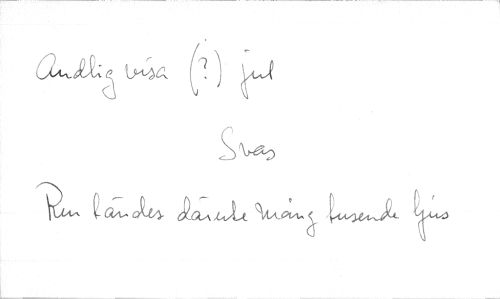 Andlig visa (?) jul
Svas
Ren tändes därute mång tusende ljus